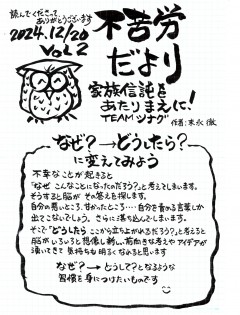 読んでくださって
ありがとうございます
2024.12/20
Vol.2
不苦労
だより
家族信託を
あたりまえに!
TEAMツナグ
作者:末永 徹
なぜ?→どうしたら?
に変えてみよう
不幸なことが起きると
「なぜ こんなことになったのだろう?」と考えてしまいます。
そうすると脳が その答えを探します。
自分の悪いところ、甘かったところ・・・自分を責める言葉しか
出てこないでしょう。さらに落ち込んでしまいます。
そこで「どうしたら ここから立ち上がれるだろう?」と考えると
脳がいろいろと想像し新しい前向きな考えや アイデアが
湧いてきて 気持ちも明るくなれると思います
なぜ?→どうして?となるような
習慣を身につけたいものです